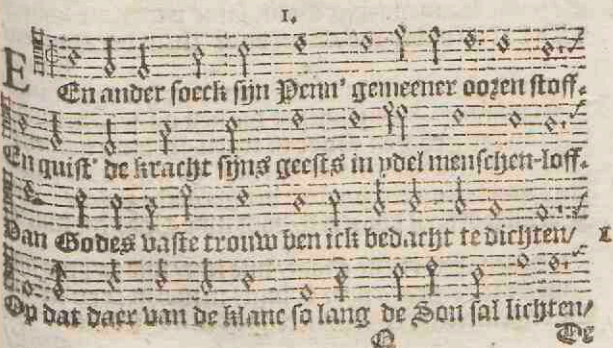 1.
En ander soeck sijn Penn' gemeener oozen stoff.
En quist' de kracht sijns geests in ydel menschen-loff.
Van Godes vaste trouw ben ick bedacht te dichten/
Op dat daer van de klanc so lang de Son sal lichten/
De